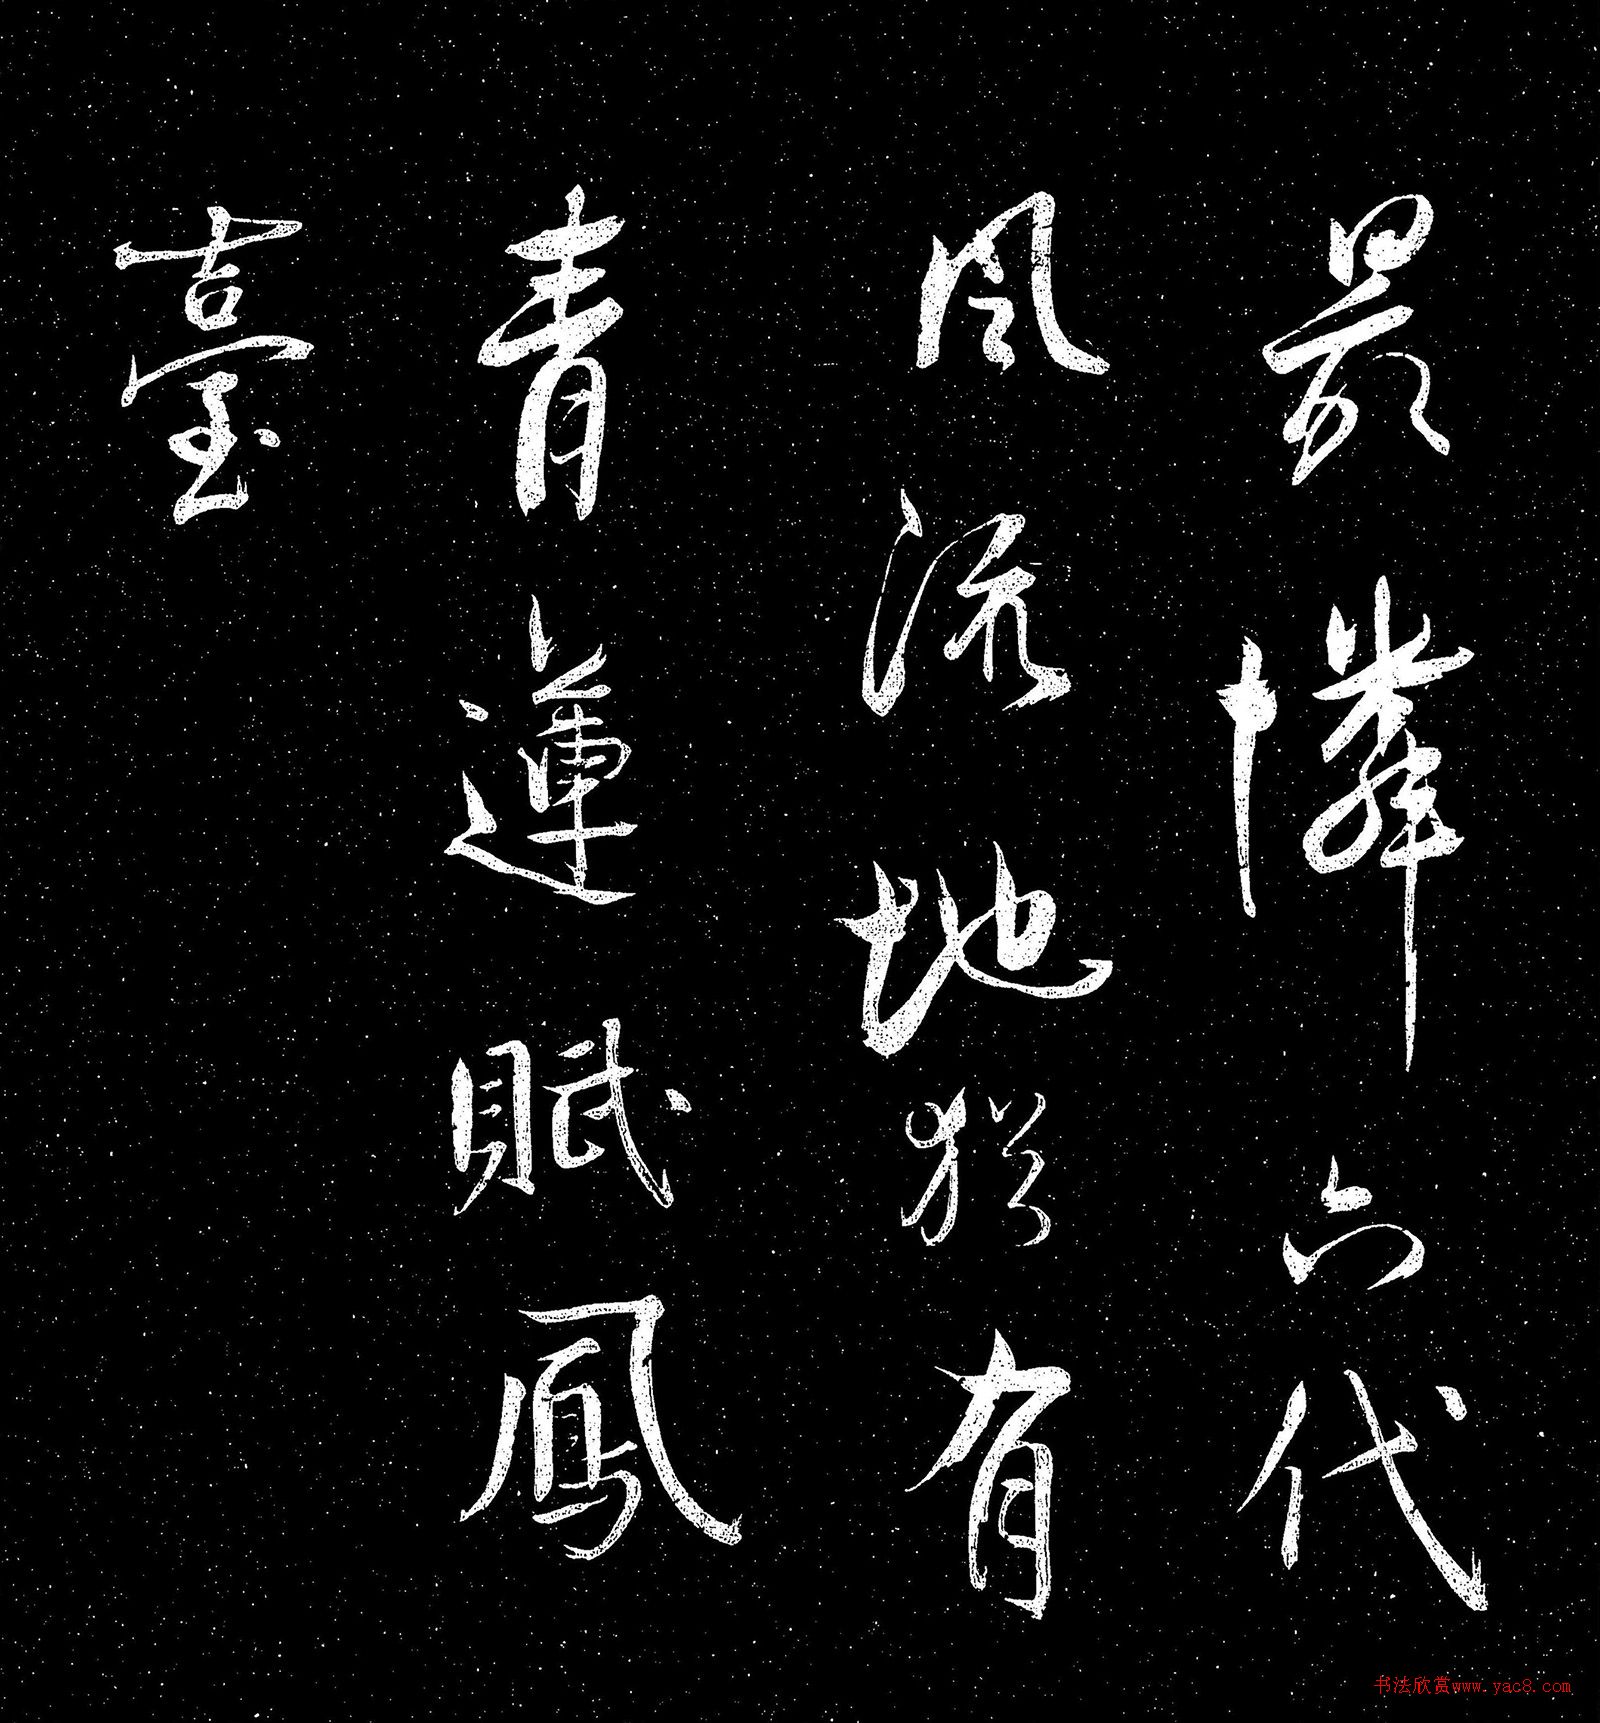 最憐六代
風流地猶有
青蓮賦鳳
臺
书法欣赏www.yac8.com